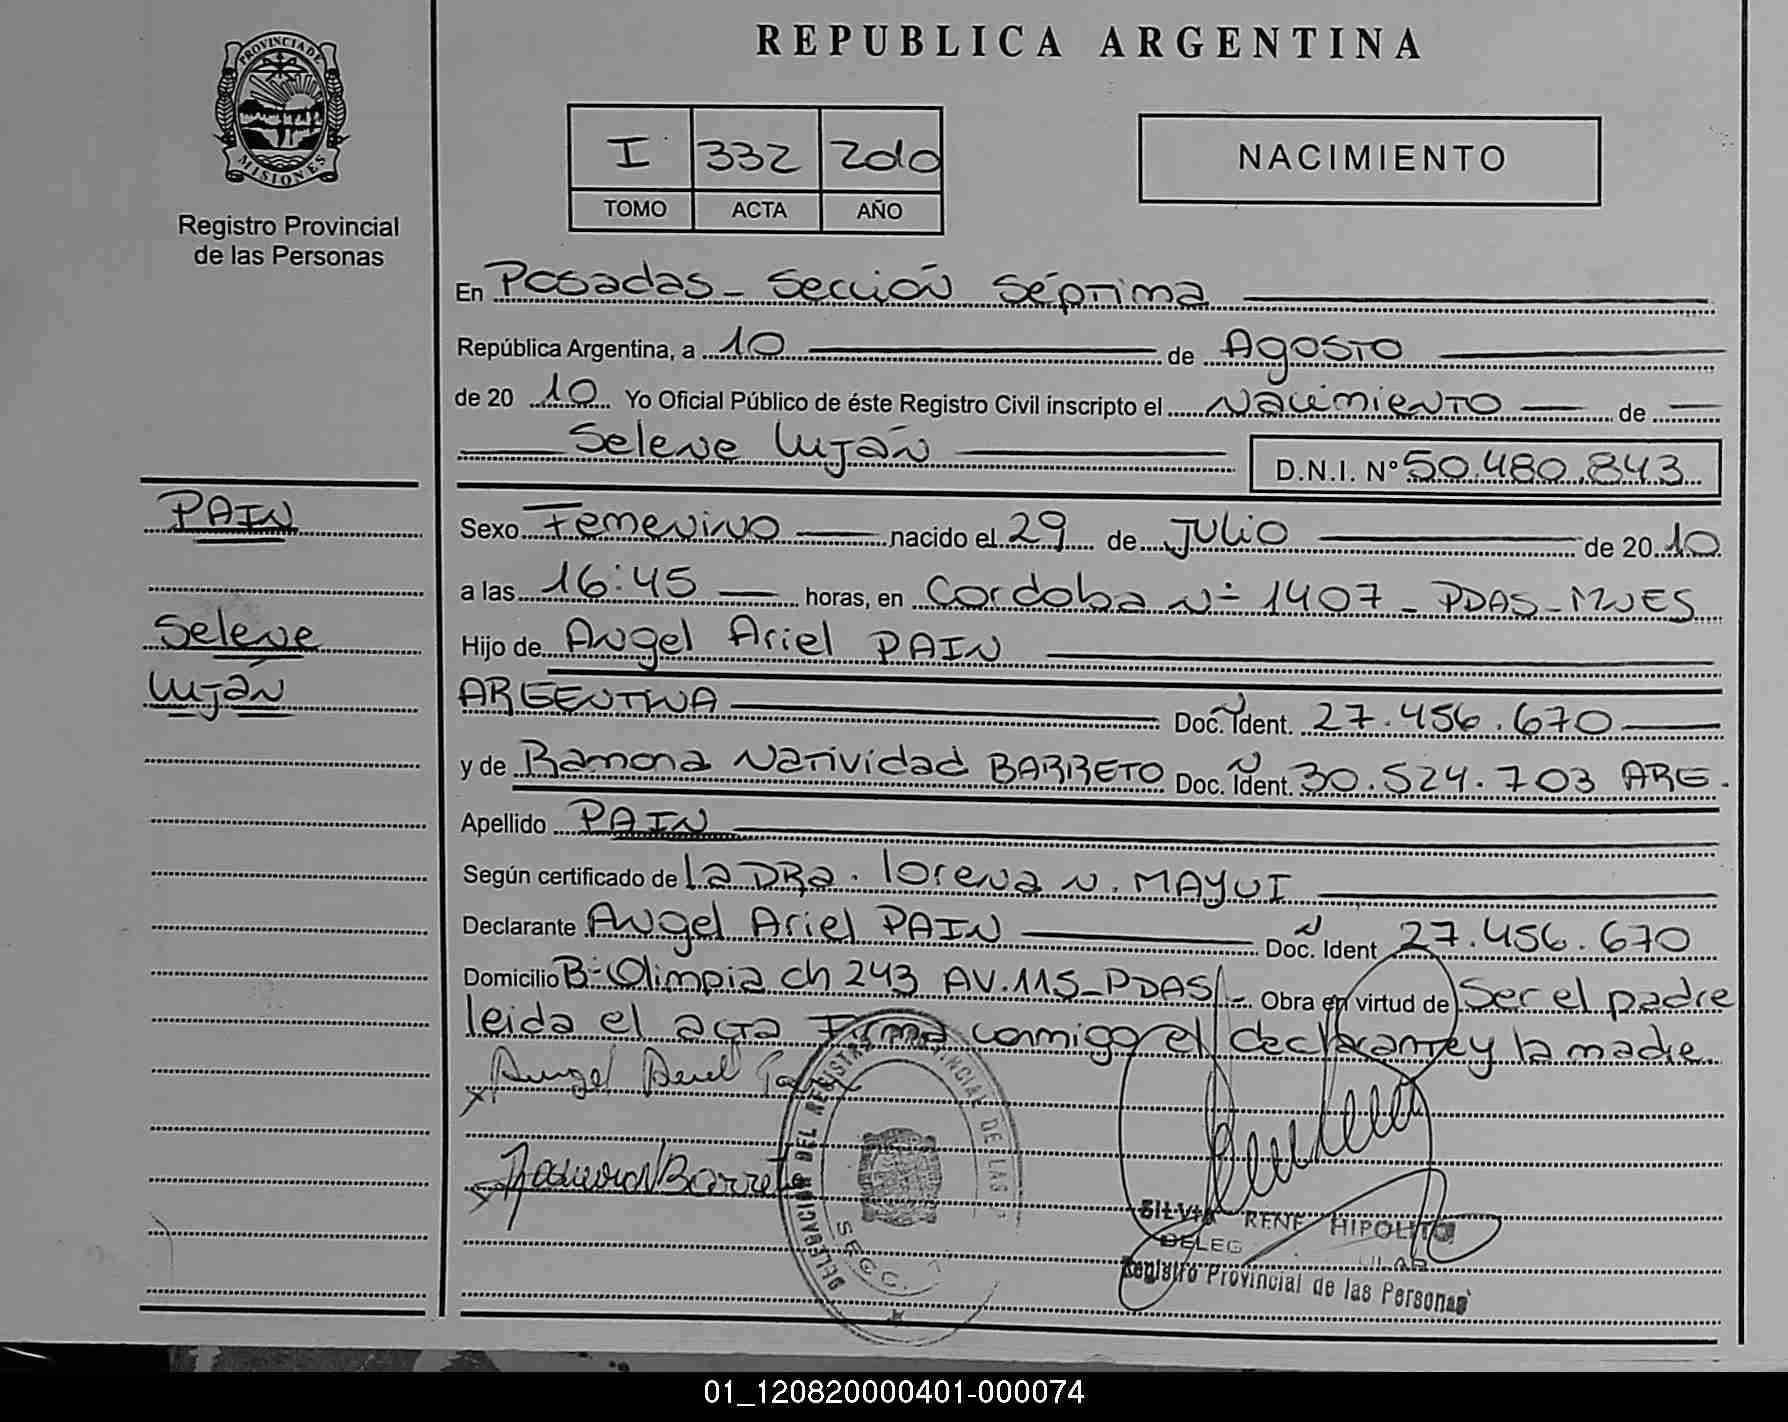 REPUBLICA ARGENTINA
PROVINCIA DE MISIONES
Registro Provincial
de las Personas
I 332 2010
TOMO ACTA AÑO
NACIMIENTO
En Posadas - Sección Séptima
República Argentina, a 10 de Agosto
de 20 10 Yo Oficial Público de éste Registro Civil inscripto el Nacimiento de
Selene Luján
D.N.I. Nº 50.480.843
PAIN
Selene
Luján
Sexo Femenino nacido el 29 de Julio de 20 10
a las 16:45 horas, en Cordoba Nº 1407 - PDAS - MNES
Hijo de Angel Ariel PAIN
ARGENTINA Doc. Ident. 27.456.670
y de Ramona Natividad BARRETO Doc. Ident. 30.524.703 ARG.
Apellido PAIN
Según certificado de La DRa. Lorena N. MAYUI
Declarante Angel Ariel PAIN Doc. Ident 27.456.670
Domicilio Bº Olimpia ch 243 AV. 115 - PDAS - Obra en virtud de Ser el padre
leida el acta Firma conmigo el declarante y la madre
Angel Ariel
DELEGACION DEL REGISTRO PROVINCIAL DE LAS
SECC.
SILVIA RENE HIPOLITO
DELEG
Registro Provincial de las Personas
01_120820000401-000074